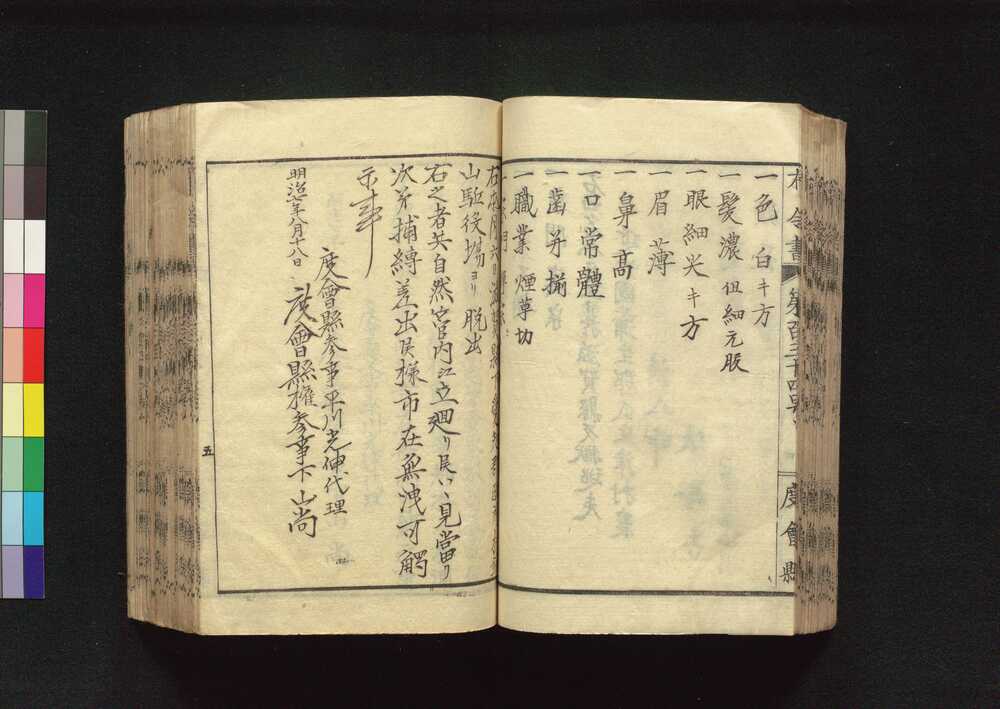 布令書 第百三十四号 度會縣
一色 白キ方
一髪濃 但細元股
一眼細尖キ方
一眉 薄
一鼻 高
一口 常體
一歯并揃
一職業 煙草切
山駈役場ヨリ脱出
右之者共自然管内江立廻リ候ハヽ見當リ
次第捕縛差出候様市在無洩可觸
示事
明治七年八月十八日
度會縣参事平川光伸代理
度會縣権参事下山尚
五